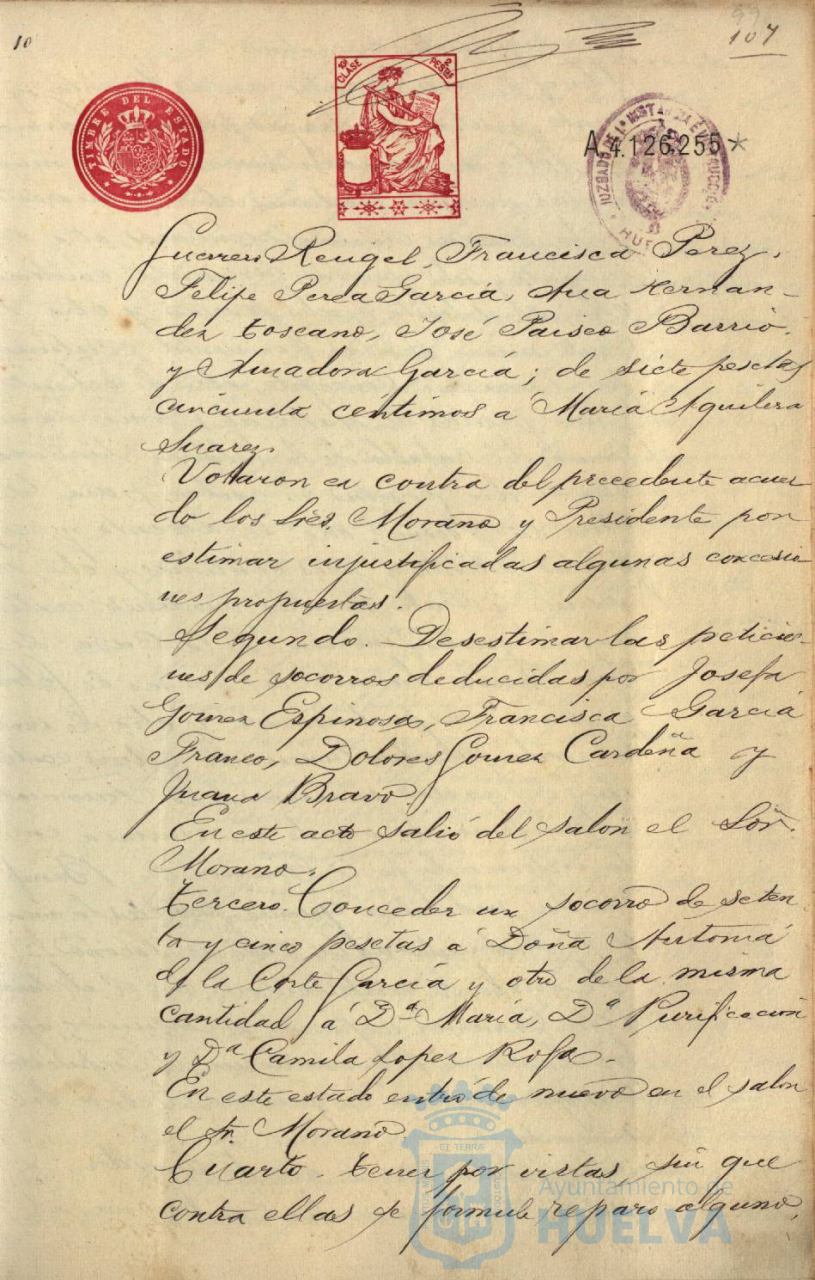 10
99
107
TIMBRE DEL ESTADO
10ª CLASE
2 PESTAS
A.4.126.255*
JUZGADO DE 1ª INSTANCIA É INSTRUCCIÓN
HUE
Guerrero Rengel, Francisca Perez,
Felipe Perea Garcia, Ana Hernan-
dez Toscano, José Paisco Barrio,
y Amadora García; de siete pesetas
cincuenta céntimos á María Aguilera
Suarez.
Votaron en contra del precedente acuer-
do los Sres. Morano y Presidente por
estimar injustificadas algunas concesio-
nes propuestas.
Segundo. Desestimar las peticio-
nes de socorros deducidas por Josefa
Gómez Espinosa, Francisca García
Franco, Dolores Gomez Cardeña y
Juana Bravo.
En este acto salió del salon el Sor.
Morano.
Tercero. Conceder un socorro de seten
ta y cinco pesetas á Doña Antonia
de la Corte García y otro de la misma
cantidad á Dª María, Dª Purificacion
y Dª Camila Lopez Rofa.
En este estado entro de nuevo en el salon
el Sr. Morano.
Cuarto. Tener por vistas sin que
contra ellas se formule reparo alguno,
Ayuntamiento de
HUELVA